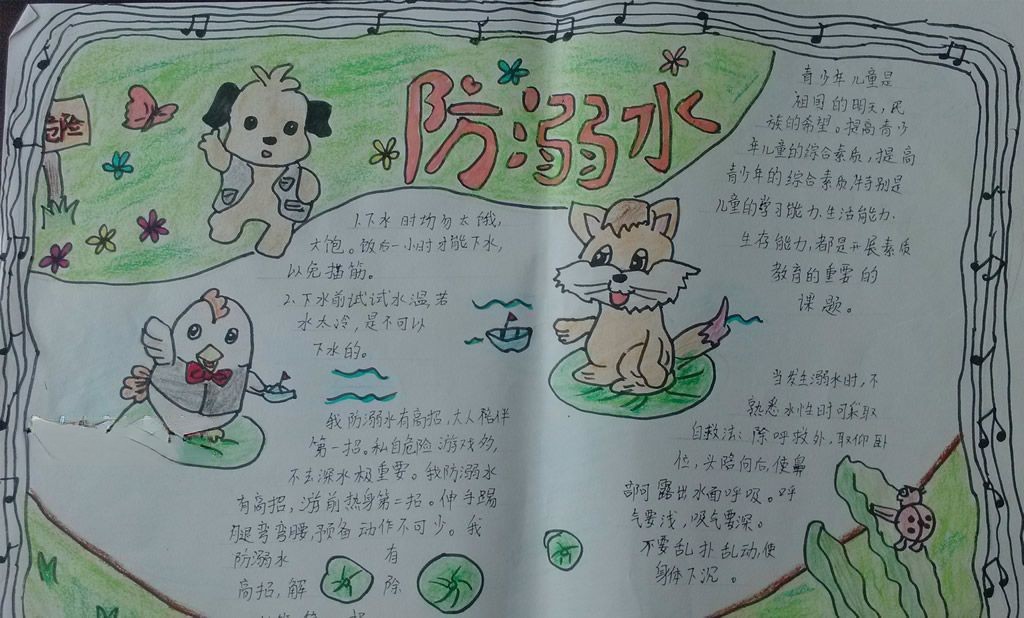 防溺水
危险
1.下水时切勿太饿,
太饱。饭后一小时才能下水,
以免抽筋。
2.下水前试试水温,若
水太冷,是不可以
下水的。
我防溺水有高招,大人陪伴
第一招。私自危险游戏多,
不去深水极重要。我防溺水
有高招,游前热身第二招。伸手踢
腿弯弯腰,预备动作不可少。我
防溺水 有
高招,解 除
青少年儿童是
祖国的明天,民
族的希望。提高青少
年儿童的综合素质,提高
青少年的综合素质,特别是
儿童的学习能力、生活能力、
生存能力,都是开展素质
教育的重要的
课题。
当发生溺水时,不
熟悉水性时可采取
自救法:除呼救外,取仰卧
位,头陪向后,使鼻
部可露出水面呼吸。呼
气要浅,吸气要深。
不要乱扑乱动,使
身体下沉。